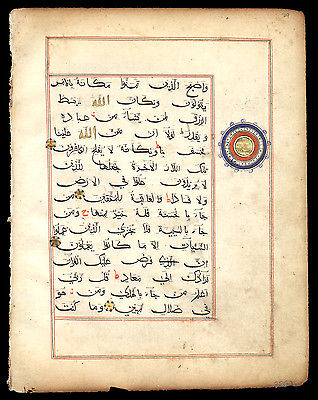 واصبح الذين تمنوا مكانه بالامس
يقولون ويكان الله يبسط
الرزق لمن يشاء من عباده
ويقدر لولا ان من الله علينا
لخسف بنا ويكانه لا يفلح الكافرون
تلك الدار الاخرة نجعلها للذين
لا يريدون علوا في الارض
ولا فسادا والعاقبة للمتقين من
جاء بالحسنة فله خير منها ومن
جاء بالسيئة فلا يجزى الذين عملوا
السيئات الا ما كانوا يعملون
ان الذي فرض عليك القران
لرادك الى معاد قل ربي
اعلم من جاء بالهدى ومن هو
في ضلال مبين وما كنت